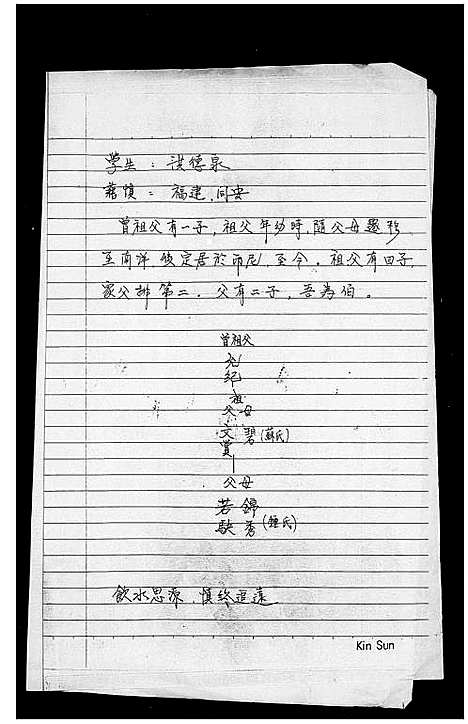 學生：洪德泉
籍貫：福建，同安
曾祖父有一子，祖父年幼時，隨父母遷移
至南洋，後定居於印尼，至今。祖父有四子，
家父排第二．父有二子，吾為伯。
曾祖父
允
紀
祖
父母
文 碧(蘇氏)
賞
父母
若 錦
缺 秀(鍾氏)
飲水思源，慎終追遠
Kin Sun